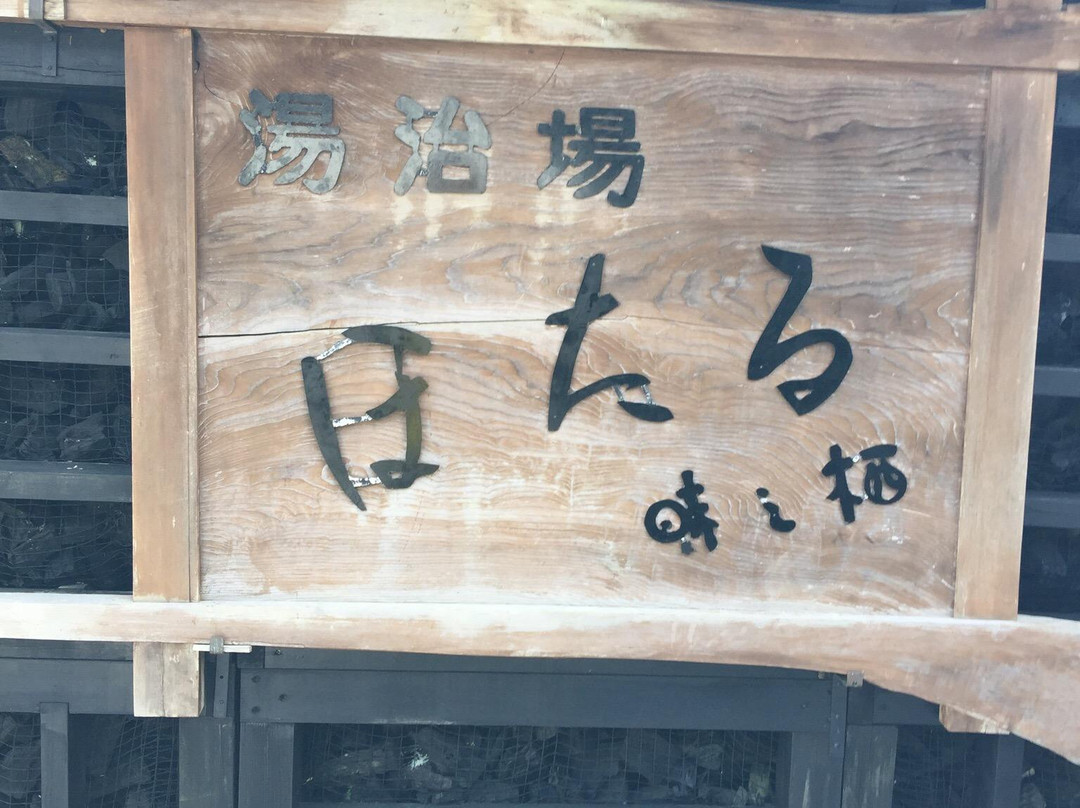 湯治場
ほたる
味之栖